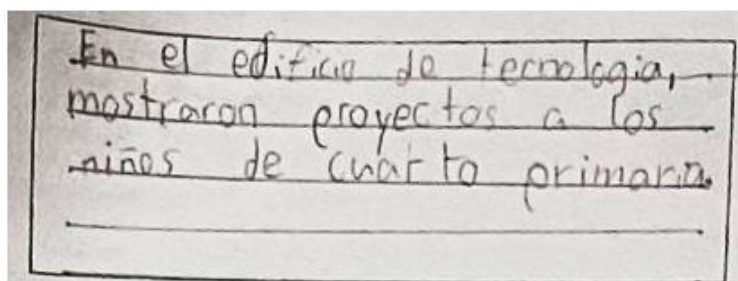 En el edificio de tecnologia,
mostraron proyectos a los
niños de cuarto primaria.